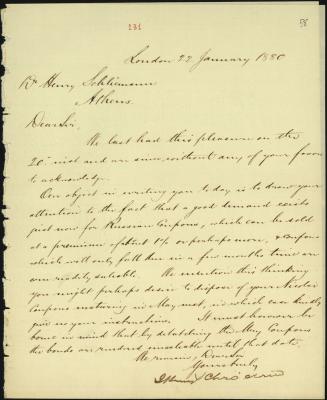 131
London 22 January 1880
Dr Henry Schliemann
Athens.
Dear Sir,
We last had this pleasure on the
20 inst and are since without any of your favors
to acknowledge.
Our object in writing you to day is to draw your
attention to the fact that a good demand exists
just now for Russian Coupons, which can be sold
at a premium of about 1% or perhaps more, & Coupons
which will only fall due in a few months time are
even readily saleable. We mention this thinking
you might perhaps desire to dispose of your
Coupons maturing in May next, in which case kindly
give us your instructions. It must however be
borne in mind that by detatching the May Coupons
the bonds are rendered unsaleable until that date.
We remain, Dear Sir
Yours truly
J Henry Schröder